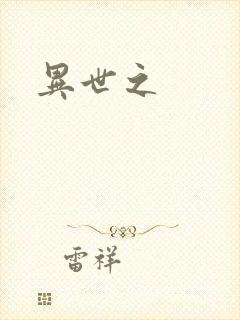 異世之
雷祥